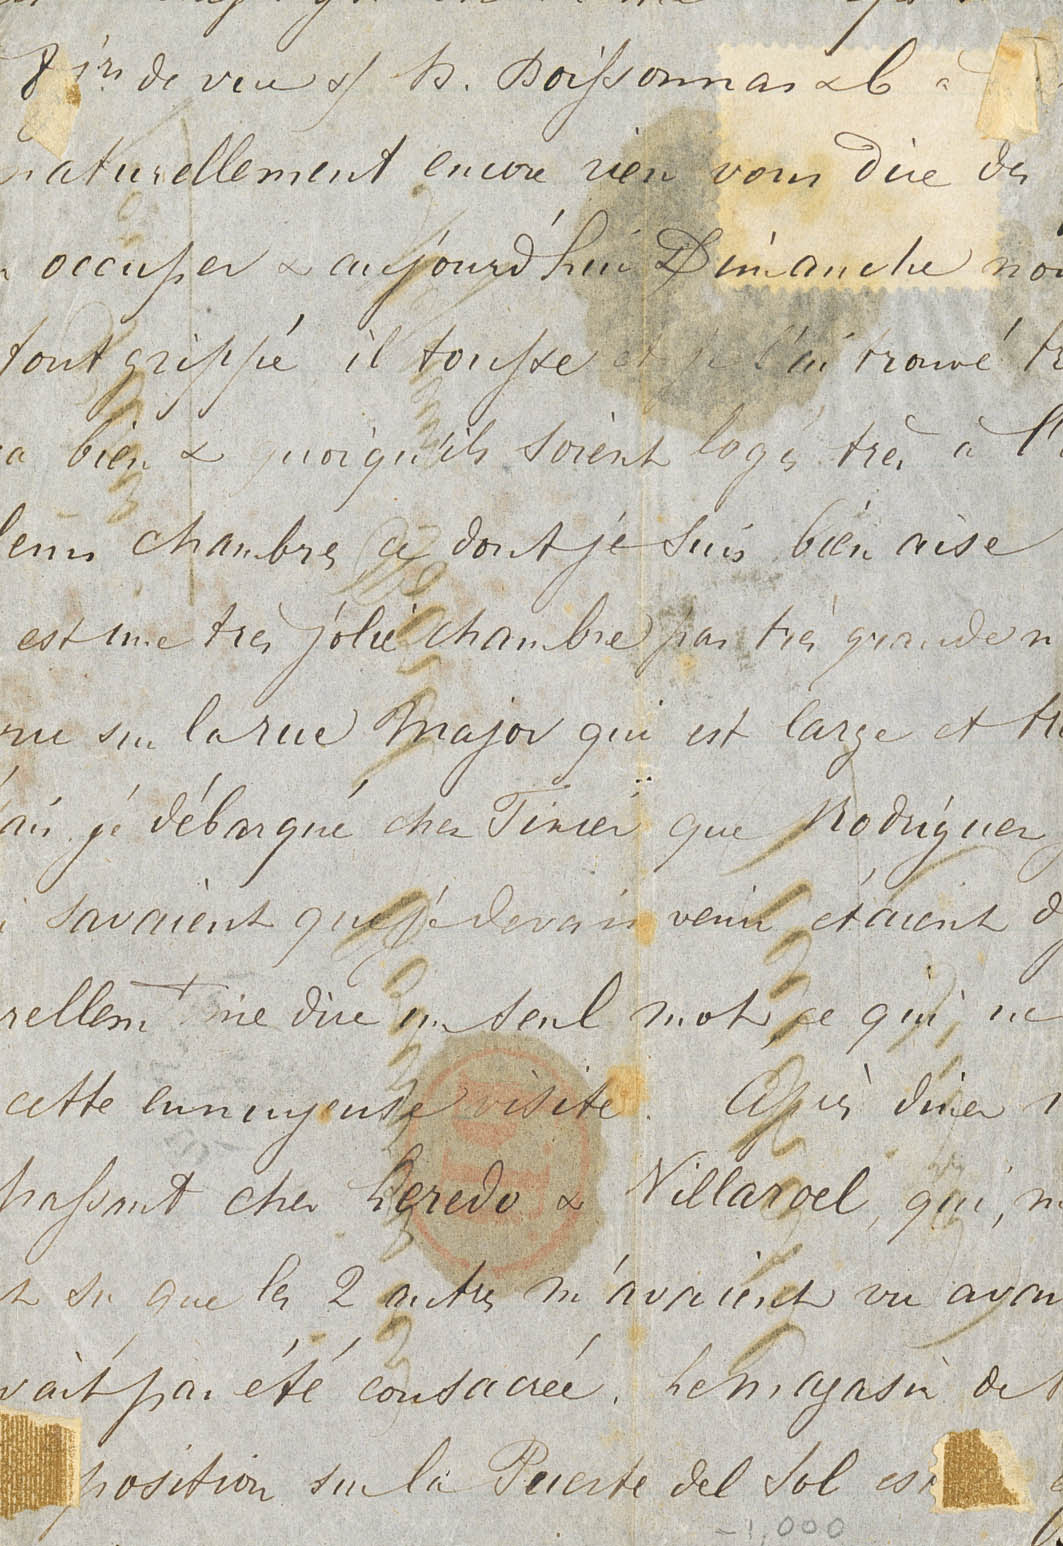 de vue s/ B. Boissonnas & C à
naturellement encore rien vous dire des
occuper & aujourd'hui Dimanche nou
tout grippé il tousse et je l'ai trouvé tr
a bien & quoiqu'ils soient logés très à l'
leurs chambres ce dont je suis bien aise
est une très jolie chambre pas très grande
rue sur la rue Major qui est large et tr
je débarqué chez que Rodriguez
savaient que je devais venir étaient
rellemt me dire un seul mot, ce qui ne
cette ennuyeuse visite. Après diner
passant chez Heredo & Villaroel, qui,
su que les 2 autres m'avaient vu avan
vait pas été consacrée. Le magasin de
position sur la Puerte del Sol est
-1,000